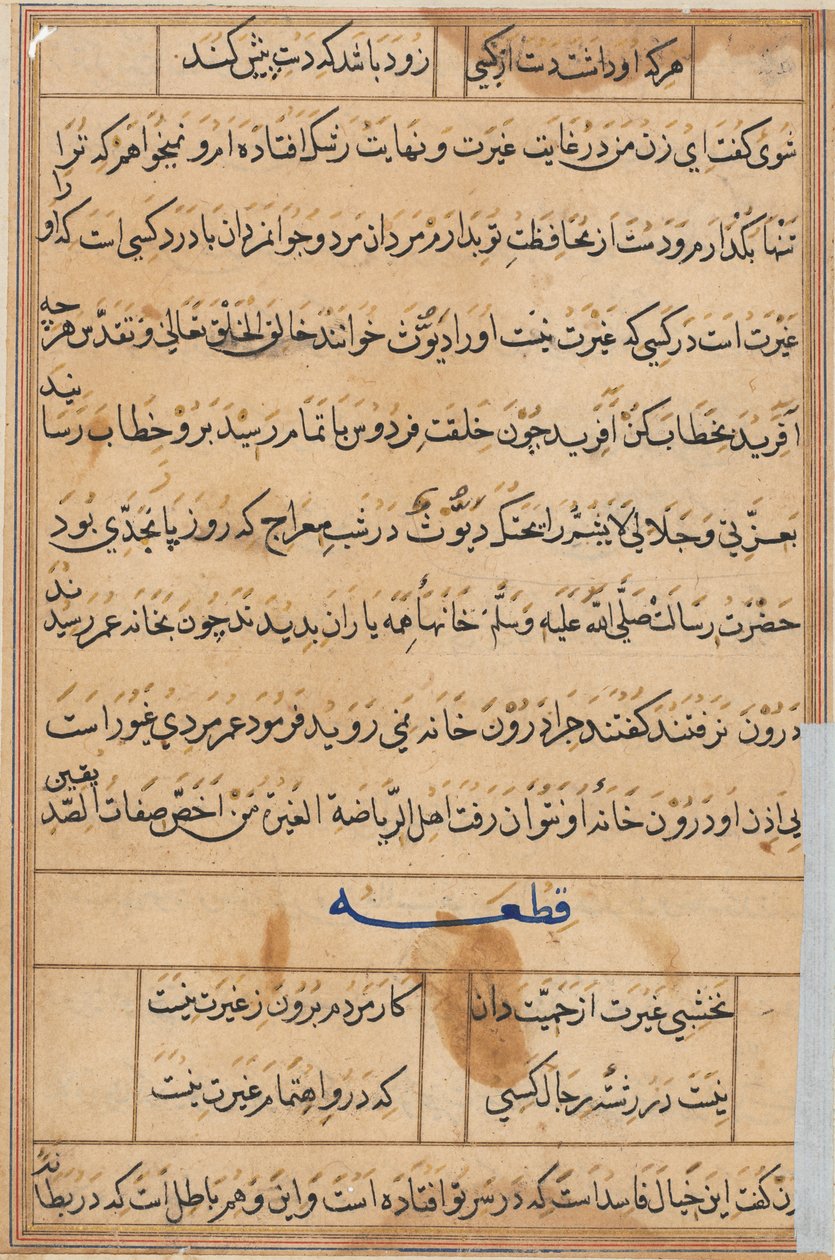 هرکه او داشت دست از کسی زود باشد که دست پیش کند
شوی گفت ای زن من در غایت غیرت و نهایت رشک افتاده ام و نمیخواهم که ترا
تنها بگذارم و دست از محافظت تو بدارم مردان مرد و جوانمردان با درد کسی است که او را
غیرت است در کسی که غیرت نیست او را دیوث خوانند خالق الخلق تعالی و تقدس هرچه
آفرید بخطاب کن آفرید چون خلقت فردوس باتمام رسید برو خطاب رسانید
بعزتی و جلالی لا یشم رایحتک دیوث در شب معراج که روز پانجدی بود
حضرت رسالت صلی الله علیه وسلم خانهاٴ همه یاران بدیدند چون بخانه عمر رسیدند
درون نرفتند گفتند چرا درون خانه نمی روید فرمود عمر مردی غیور است
بی اذن او درون خانهٔ او نتوان رفت اهل الریاضة الغیرة من اخص صفات الصدیقین
قطعه
نخشبی غیرت از حمیت دان کار مردم برون ز غیرت نیست
نیست در رشتهٔ رجال کسی که درو اهتمام غیرت نیست
زن گفت این خیال فاسد است که در سر تو افتاده است و این وهم باطل است که در بطانهٔ